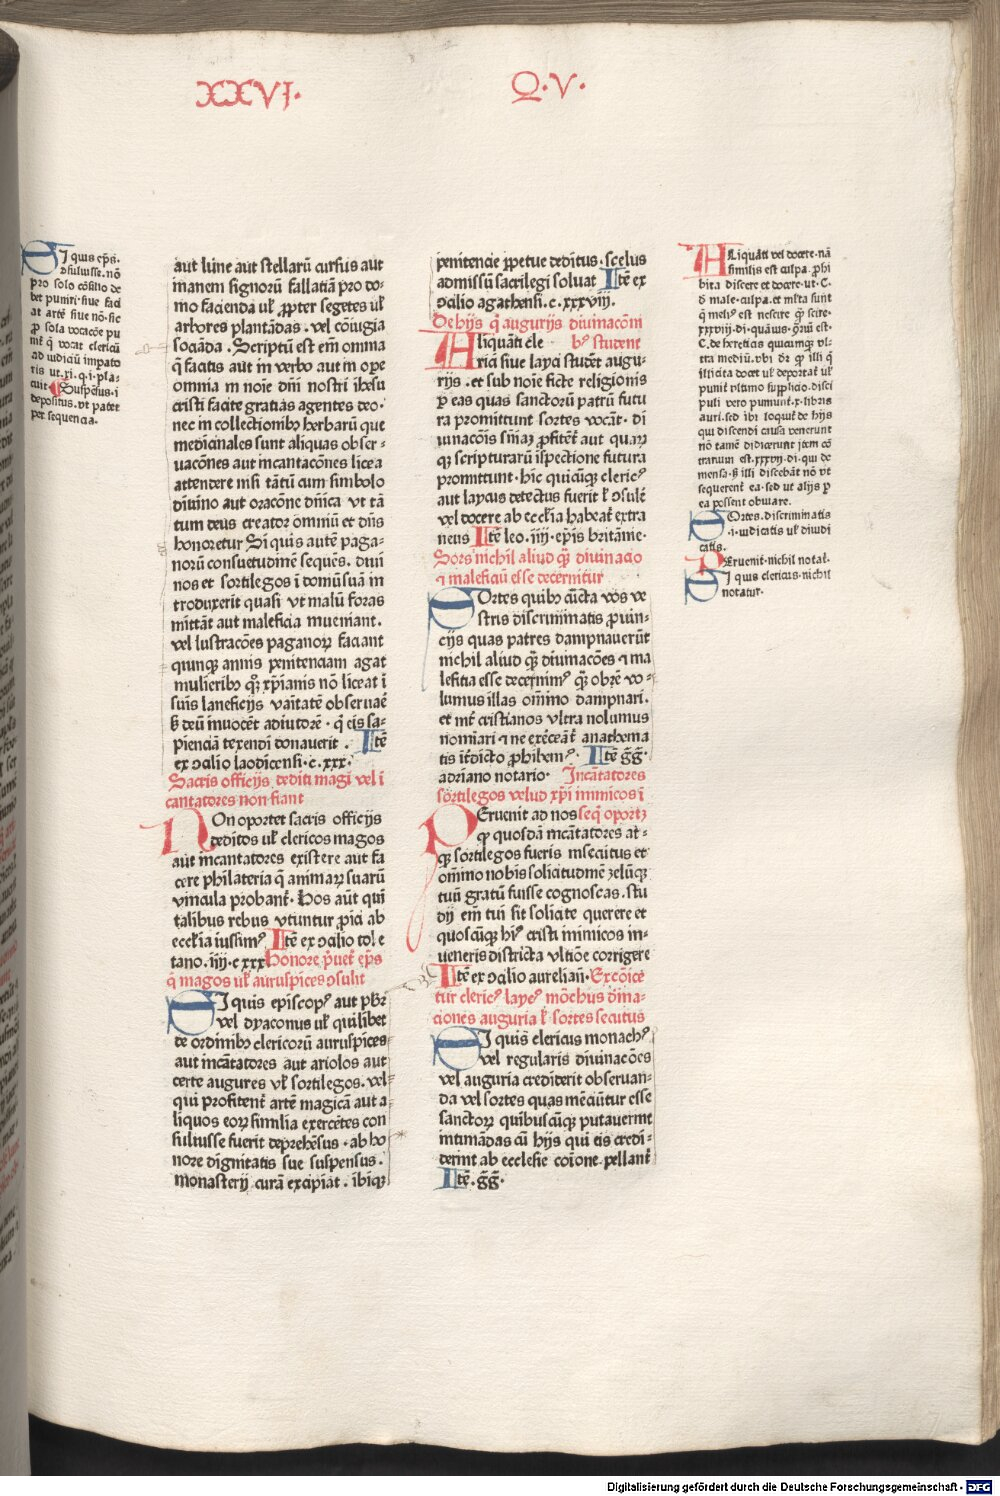 XXVI. Q.V.
Si quis ep̄s.
ↄsuluisse. nō
pro solo cōsilio de
bet puniri. siue faci
at artē siue nō. sic
ꝓ sola vocacōe pu
nit̄ q̄ vocat clericū
ad iudiciū impato
ris ut. xi. q. i. pla-
cuit. Suspēsus. i
depositus. vt patet
per sequencia.
aut lune aut stellarū cursus aut
inanem signorū fallatiā pro do-
mo facienda uł ꝓpter segetes uł
arbores plantādas. vel cōiugia
socāda. Scriptū est em̄ omnia
q̄ facitis aut in verbo aut in oꝑe
omnia in noīe dn̄i nostri ihesu
cristi facite gratias agentes deo.
nec in collectionibꝫ herbarū que
medicinales sunt aliquas obser-
uacōnes aut incantacōnes licea
attendere nisi tātū cum simbolo
diuino aut oracōne dn̄ica vt tā
tum deus creator omniū et dn̄s
honoretur Si quis autē paga-
norū consuetudinē sequēs. diui
nos et sortilegos ī domū suā in
troduxerit quasi vt malū foras
mittāt aut maleficia inueniant.
vel lustracōes paganoꝝ faciant
quinqꝫ annis penitenciam agat
mulieribꝫ qꝫ xp̄ianis nō liceat ī
suis laneficijs vanitatē obseruaē
ꝫ deū inuocēt adiutorē. q̄ eis sa-
pienciā texendi donauerit. Itē
ex ↄcilio laodicensi. c. xxx.
Sacris officijs dediti magi vel ī
cantatores non fiant
NOn oportet sacris officijs
deditos uł clericos magos
aut incantatores existere aut fa
cere philateria q̄ animaꝝ suarū
vincula probant̄. Hos aūt qui
talibus rebus vtuntur ꝓici ab
ecclīa iussimꝰ Itē ex ↄcilio tole
tano. iiij. c xxx Honore p̄uet̄ ep̄s
q̄ magos uł auruspices ↄsulit
SI quis episcopꝰ aut pb̄r
vel dyaconus uł quilibet
de ordinibꝫ clericorū auruspices
aut incātatores aut ariolos aut
certe augures vł sortilegos. vel
qui profitent̄ artē magicā aut a
liquos eoꝝ similia exercētes con
suluisse fuerit deprehēsus. ab ho
nore dignitatis sue suspensus.
monasterij curā excipiat. ibiqꝫ
penitencie ꝑpetue deditus. scelus
admissū sacrilegi soluat Itē ex
ↄcilio agathensi. c. xxxviij.
De hijs q̄ augurijs diuinacōni
Aliquāti cle bꝫ student
rici siue layci studēt augu-
rijs. et sub noīe ficte religionis
ꝑ eas quas sanctorū patrū futu
ra promittunt sortes vocāt. di
uinacōis sn̄iaꝫ ꝓfitēt̄ aut quaꝝ
qꝫ scripturarū īspectione futura
promittunt. hic quicūqꝫ clericꝰ
aut laycus detectus fuerit ł ↄsulē
vel docere ab ecclīa habeat̄ extra
neus Itē leo. iiij. ep̄is britānie.
Sors nichil aliud qꝫ diuinacio
⁊ maleficiū esse decernitur
SOrtes quibꝫ cūcta vōs ve
stris discriminatis ꝓuin-
cijs quas patres dampnauerūt
nichil aliud qꝫ diuinacōes ⁊ ma
leficia esse decernimꝰ qꝫ obrē vo-
lumus illas om̄imo dampnari.
et int̄ cristianos vltra nolumus
nomīari ⁊ ne exerceāt̄ anathema
tis īt̄dicto ꝓhibemꝰ. Itē gḡ.
adriano notario. Incātatores
sortilegos velud xp̄i inimicos ī
PEruenit ad nos seq̄ oportꝫ
qꝫ quosdā incātatores at-
qꝫ sortilegos fueris insecutus et
om̄imo nobis solicitudinē ꝫelūqꝫ
tuū gratū fuisse cognoscas. stu
dij em̄ tui sit solicite querere et
quoscūqꝫ hiꝰ cristi inimicos in-
ueneris districta vltiōe corrigere
Itē ex ↄcilio aureliań. Excōice
tur clericꝰ laycꝰ mōchus diuīa-
ciones auguria ł sortes secutus
SI quis clericus monachꝰ
vel regularis diuinacōes
vel auguria crediderit obseruan-
da vel sortes quas mēciūtur esse
sanctoꝝ quibuscūqꝫ putauerint
intimādas cū hijs qui eis credi-
derint ab ecclesie coīone pellant̄
Itē. gḡ.
ALiquāti vel docere. nā
similis est culpa. ꝓhi
bita discere et docere. ut. C.
d male. culpa. et infra sunt
q̄ meliꝰ est nescire qꝫ scire.
xxxviij. di. quāuis. ꝯrū est.
C. de hereticis quicumqꝫ. vl-
tra mediū. vbi dr̄ qꝫ illi q̄
illicita docet uł deportat̄ uł
punit̄ vltimo supplicio. disci
puli vero puniunt̄. x. libris
auri. sed ibi loquit̄ de hijs
qui discendi causa venerunt
nō tamē didicerunt jtem cō
trarium est. xxxvij. di. qui de
mensa. ꝫ illi discebāt nō vt
sequerent̄ ea. sed ut alijs ꝑ
ea possent obuiare.
SOrtes. discriminatis
.i. iudicatis uł diuidi
catis.
PEruenit. nichil notat̄.
SI quis clericus. nichil
notatur.
Digitalisierung gefördert durch die Deutsche Forschungsgemeinschaft - DFG